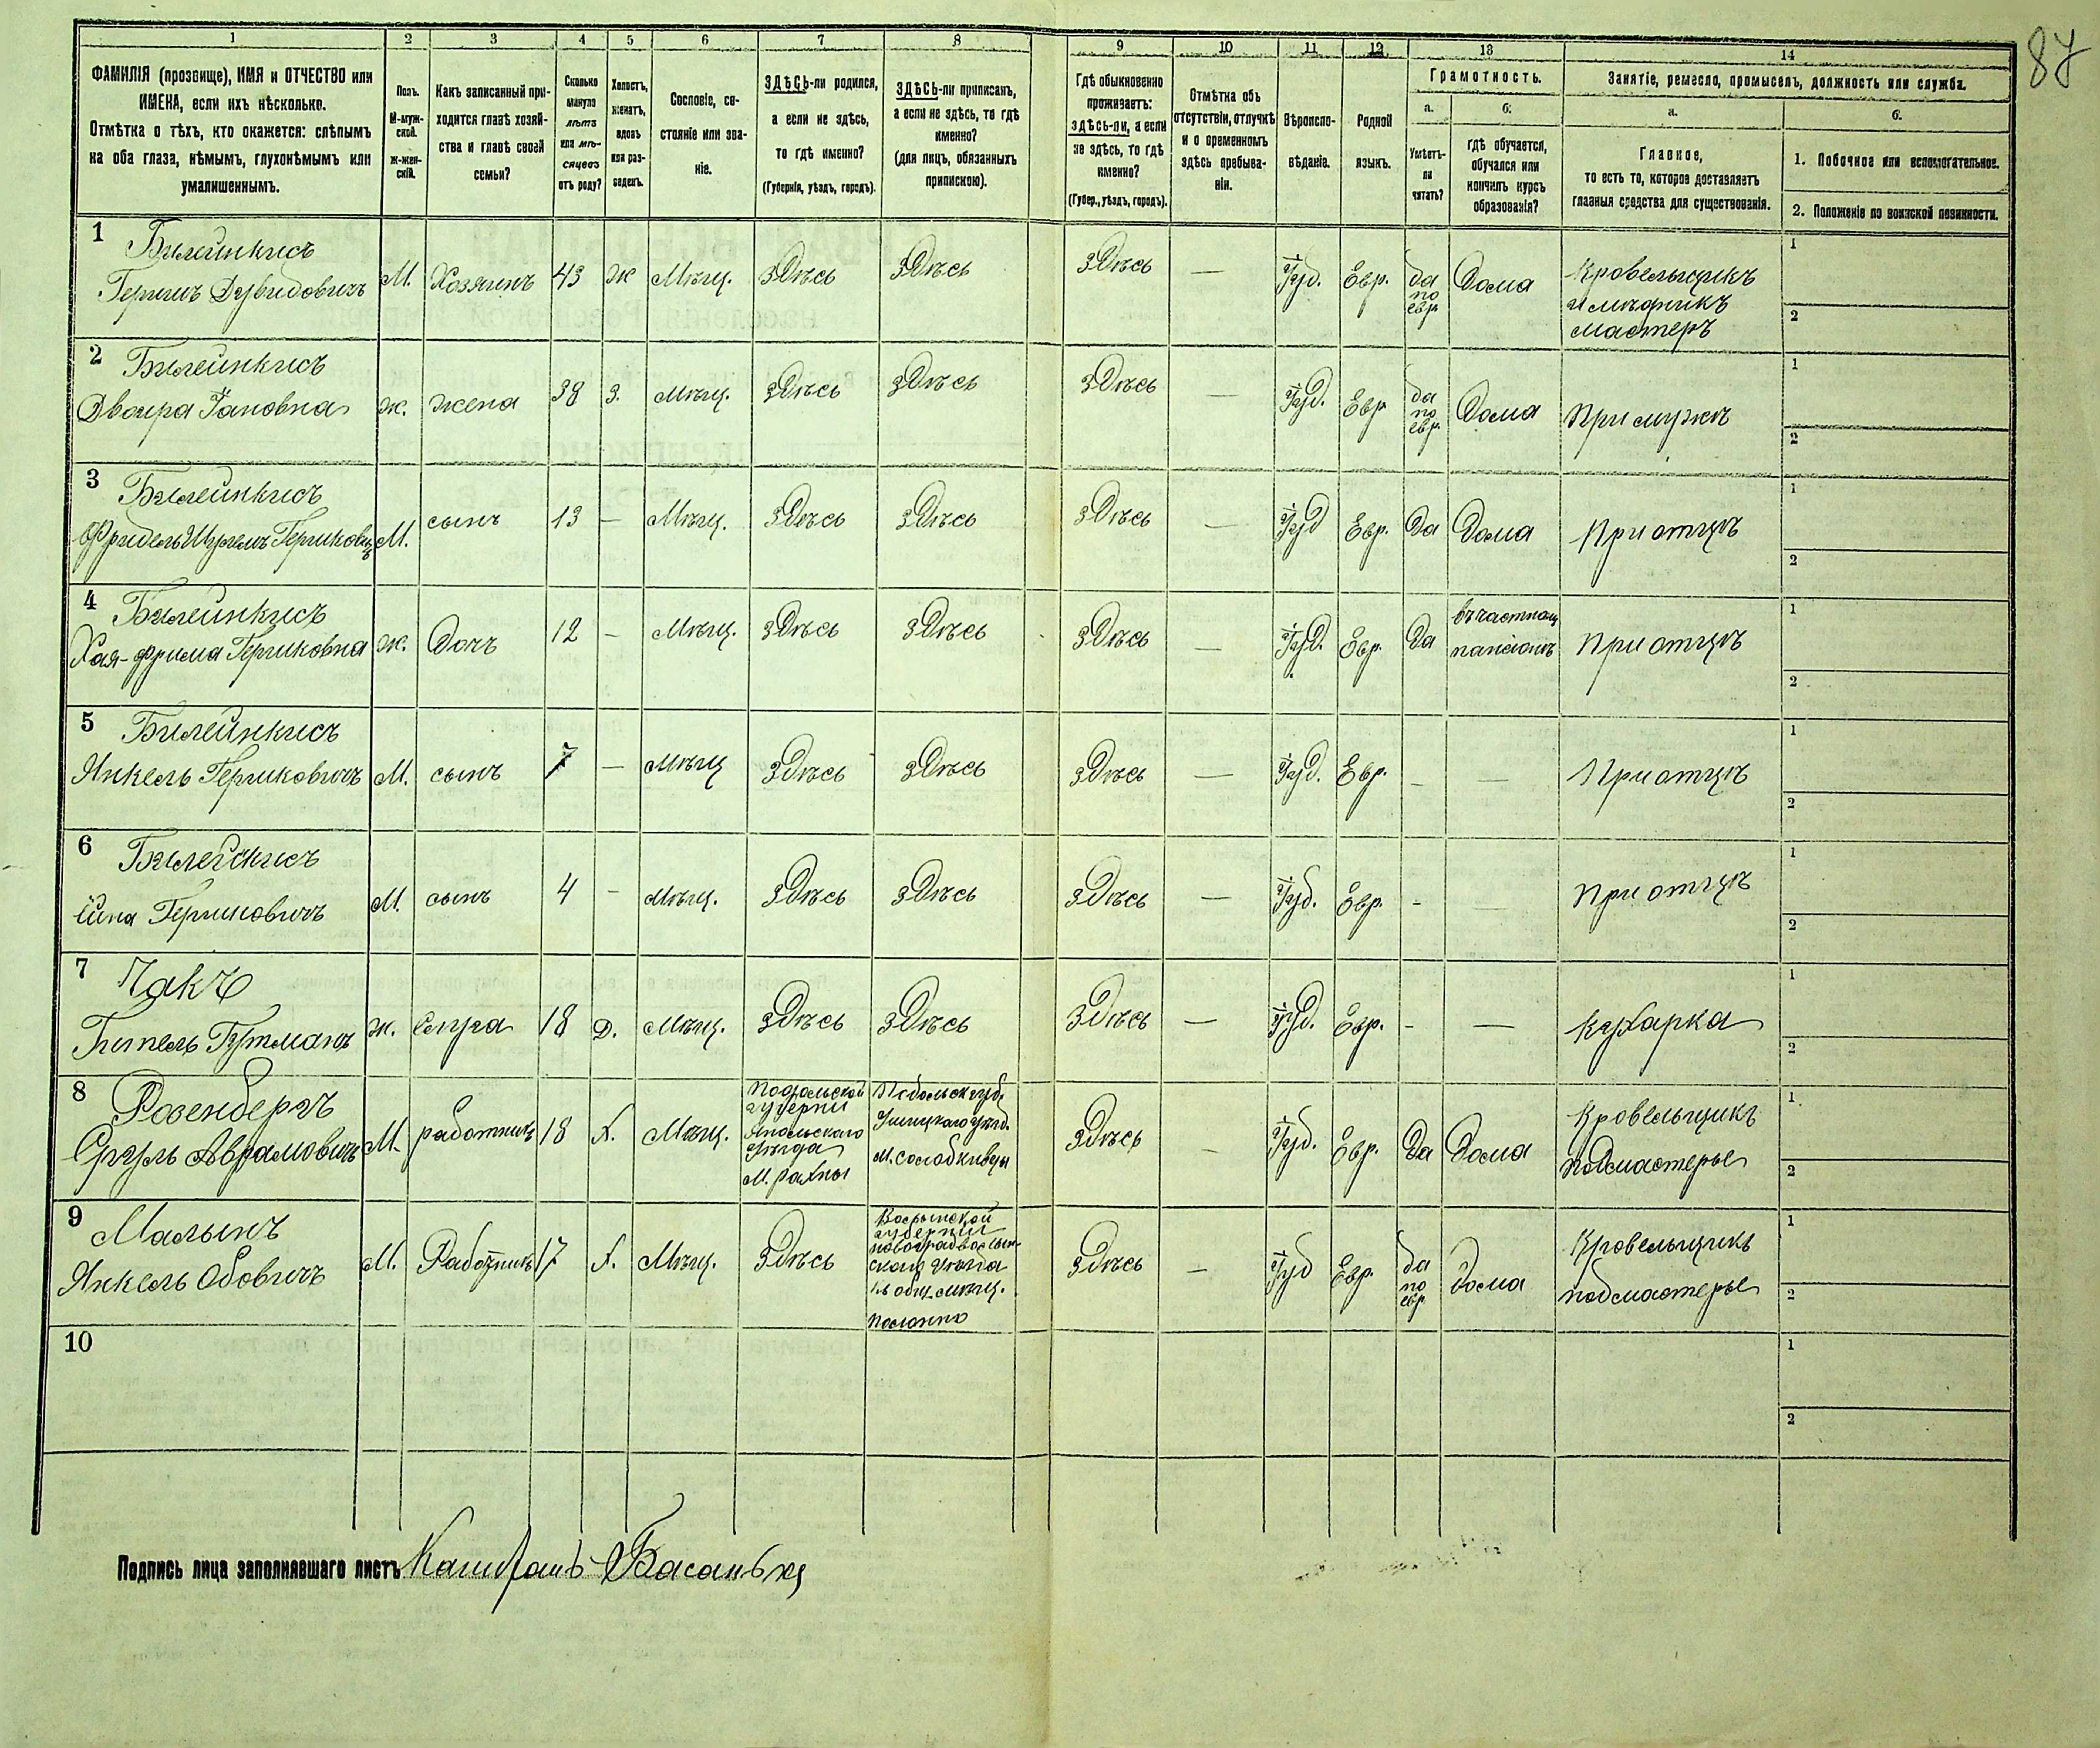 87
1 2 3 4 5 6 7 8 9 10 11 12 13 14
ФАМИЛІЯ (прозвище), ИМЯ и ОТЧЕСТВО или
ИМЕНА, если ихъ нѣсколько.
Отмѣтка о тѣхъ, кто окажется: слѣпымъ
на оба глаза, нѣмымъ, глухонѣмымъ или
умалишеннымъ.
Полъ.
М-муж-
ской.
Ж-жен-
скій.
Какъ записанный при-
ходится главѣ хозяй-
ства и главѣ своей
семьи?
Сколько
минуло
лѣтъ
или мѣ-
сяцевъ
отъ роду?
Холостъ,
женатъ,
вдовъ
или раз-
веденъ.
Сословіе, со-
стояніе или зва-
ніе.
ЗДѢСЬ-ли родился,
а если не здѣсь,
то гдѣ именно?
(Губернія, уѣздъ, городъ).
ЗДѢСЬ-ли приписанъ,
а если не здѣсь, то гдѣ
именно?
(для лицъ, обязанныхъ
припискою).
Гдѣ обыкновенно
проживаетъ:
здѣсь-ли, а если
не здѣсь, то гдѣ
именно?
(Губер., уѣздъ, городъ).
Отмѣтка объ
отсутствіи, отлучкѣ
и о временномъ
здѣсь пребыва-
ніи.
Вѣроиспо-
вѣданіе.
Родной
языкъ.
Грамотность.
а.
Умѣетъ-
ли
читать?
б.
гдѣ обучается,
обучался или
кончилъ курсъ
образованія?
Занятіе, ремесло, промыселъ, должность или служба.
а.
Главное,
то есть то, которое доставляетъ
главныя средства для существованія.
б.
1. Побочное или вспомогательное.
2. Положеніе по воинской повинности.
1 Билейнкисъ
Гершъ Дувидовичъ М. Хозяинъ 43 Ж Мѣщ. Здѣсь Здѣсь Здѣсь — Іуд. Евр. да по евр. Дома Кровельщикъ
и мѣдникъ
мастеръ
1
2
2 Билейнкисъ
Двойра Ж. Жена 38 З. Мѣщ. Здѣсь Здѣсь Здѣсь — Іуд. Евр да по евр. Дома При мужѣ
1
2
3 Билейнкисъ
Фридель Шулимъ Гершковичъ М. сынъ 13 — Мѣщ. Здѣсь Здѣсь Здѣсь — Іуд Евр. Да Дома При отцѣ
1
2
4 Билейнкисъ
Хая-Фрима Гершковна Ж. Дочь 12 — Мѣщ. Здѣсь Здѣсь Здѣсь — Іуд. Евр. Да въ частномъ
пансіонѣ При отцѣ
1
2
5 Билейнкисъ
Янкель Гершковичъ М. сынъ 7 — Мѣщ Здѣсь Здѣсь Здѣсь — Іуд. Евр. — — При отцѣ
1
2
6 Билейнкисъ
Гершковичъ М. сынъ 4 — Мѣщ. Здѣсь Здѣсь Здѣсь — Іуд. Евр. — — При отцѣ
1
2
7 Пакъ
Гитель Ж. 18 Д. Мѣщ. Здѣсь Здѣсь Здѣсь — Іуд. Евр. — — Кухарка
1
2
8 Розенбергъ
Сруль Аврамовичъ М. работникъ 18 Х. Мѣщ. Подольской
губерніи
Ямпольскаго
Уѣзда
М. Рахны
Подольск губ.
Ушицкаго уѣзд.
М. Солобкивцы
Здѣсь — Іуд. Евр. Да Дома Кровельщикъ
подмастерье
1
2
9 Малынъ
Янкель Овович М. Работникъ 17 Х. Мѣщ. Здѣсь Волынской
губерніи
Новоградволын-
скаго уѣзда
общ. мѣщ.
Полонно
Здѣсь — Іуд Евр. да по евр. Дома Кровельщикъ
подмастерье
1
2
10
1
2
Подпись лица заполнявшаго листъ